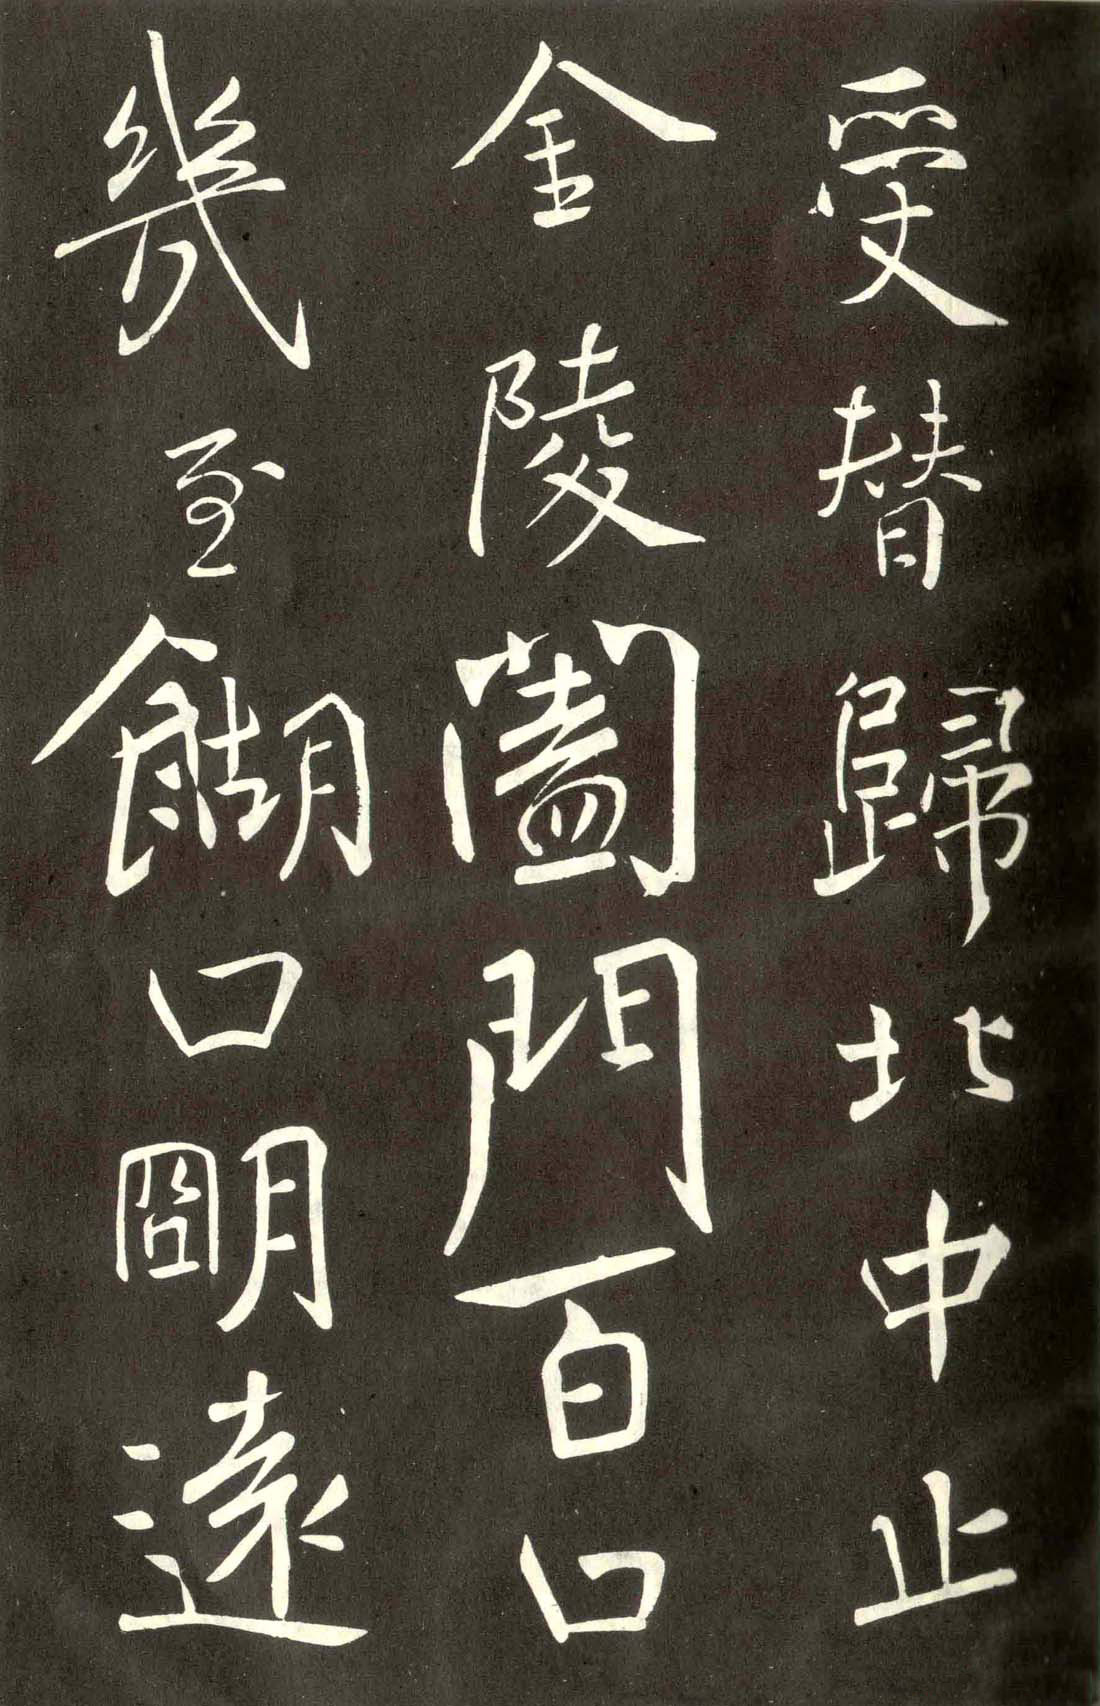 受替歸北中止
金陵闔門百口
幾至餬口明遠